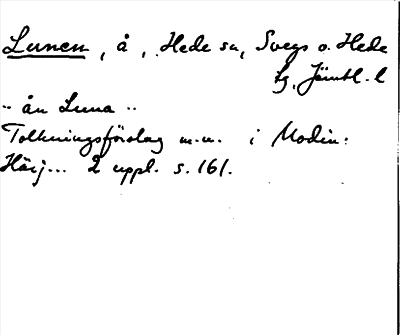 Lunen, å, Hede sn, Svegs o. Hede
tg, Jämtl. l
.. ån Luna ..
Tolkningsförslag m.m. i Modin:
Härj... 2 uppl. s. 161.